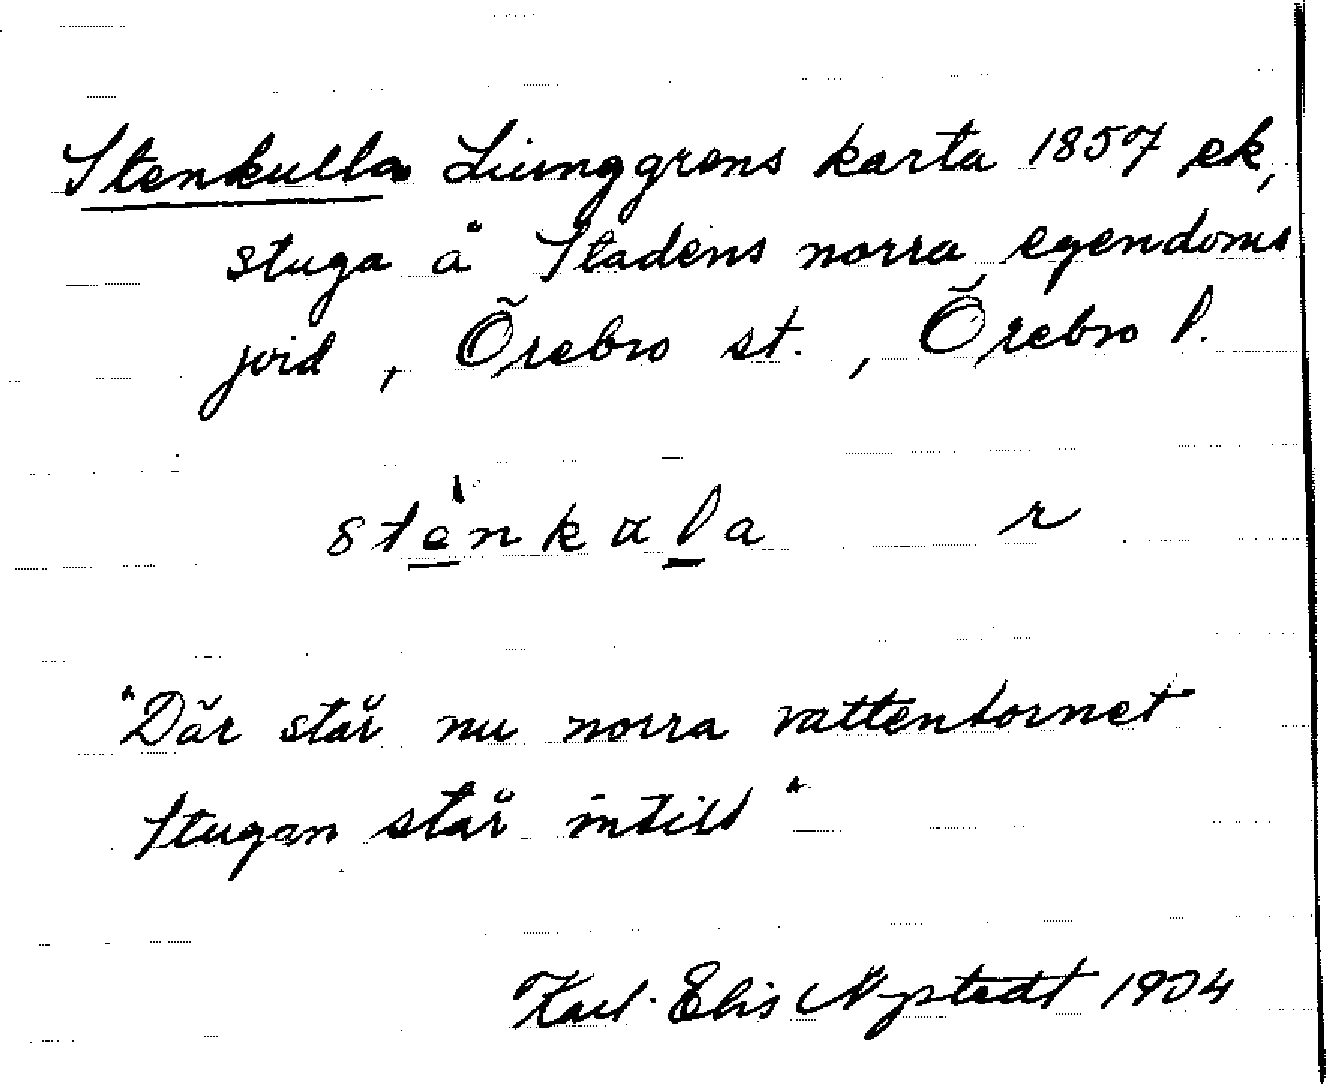 Stenkulla Ljunggrens karta 1857 ek,
stuga å Stadens norra egendoms
jord, Örebro st., Örebro l.
stènkαla r
"Där står nu norra vattentornet
Stugan står intill"
Karl-Elis Nystedt 1934